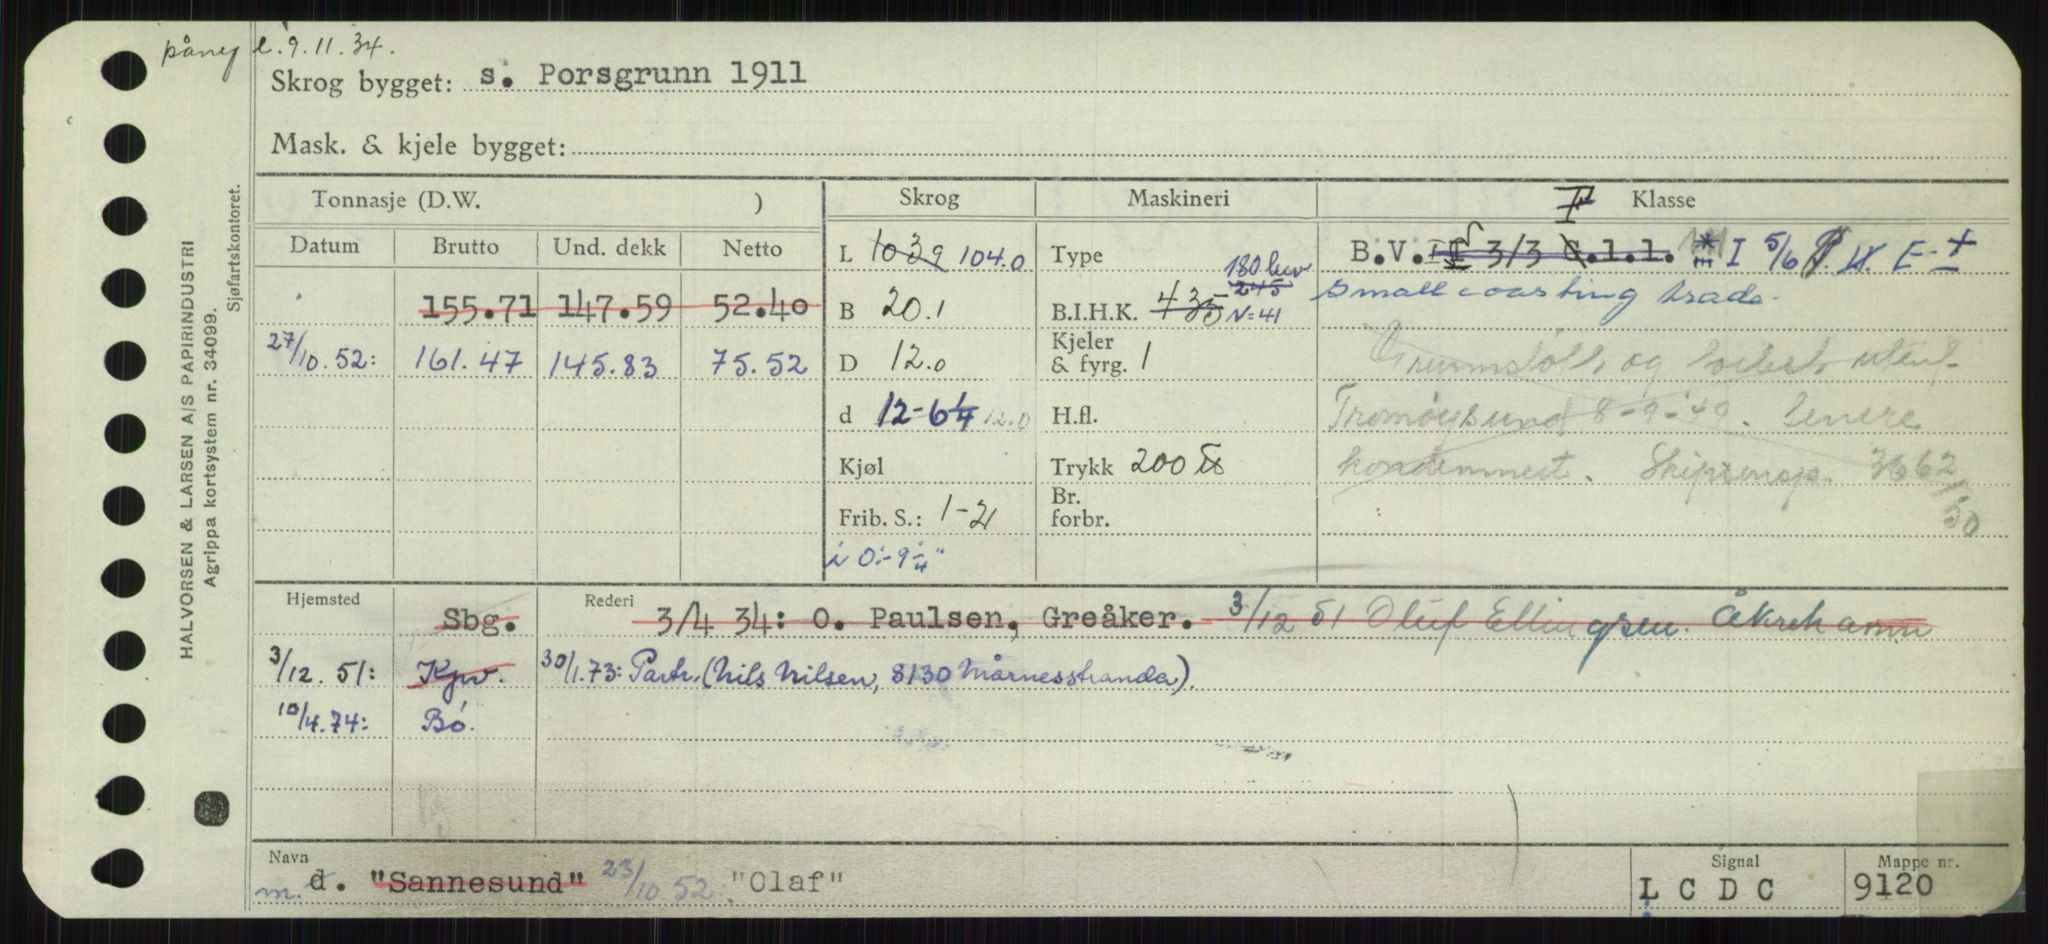 påny e. 9.11.34.
Skrog bygget: s. Porsgrunn 1911
Mask. & kjele bygget:
Tonnasje (D.W. ) Skrog Maskineri Klasse
Datum Brutto Und. dekk Netto
L 103.9 104.0 Type
B.V. 3/3 G.1.1. * I 5/6 E-+
155.71 147.59 52.40
B 20.1 B.I.H.K. 435 245 180 N=41
small coasting trade.
27/10.52: 161.47 145.83 75.52
D 12.0 Kjeler & fyrg. 1
Grunnstøtt og forlatt utenf.
d 12-6 1/4 12.0 H.fl.
Tromøysund 8-9-'49. Senere
Kjøl Trykk 200
kondemnert. Skipsinsp. 3662/50
Frib. S.: 1-2 Br. forbr.
i 0'-9 1/4"
Hjemsted Rederi
Sbg. 3/4 34: O. Paulsen, Greåker. 3/12 51 Oluf Ellingsen. Åkrehamn
3/12.51: Kpv. 30/1.73: Partr. (Nils Nilsen, 8130 Mårnesstranda).
10/4.74: Bø.
Navn Signal Mappe nr.
m. d. "Sannesund" 23/10 52 "Olaf" L C D C 9120
HALVORSEN & LARSEN A/S PAPIRINDUSTRI
Agrippa kortsystem nr. 34099.
Sjøfartskontoret.